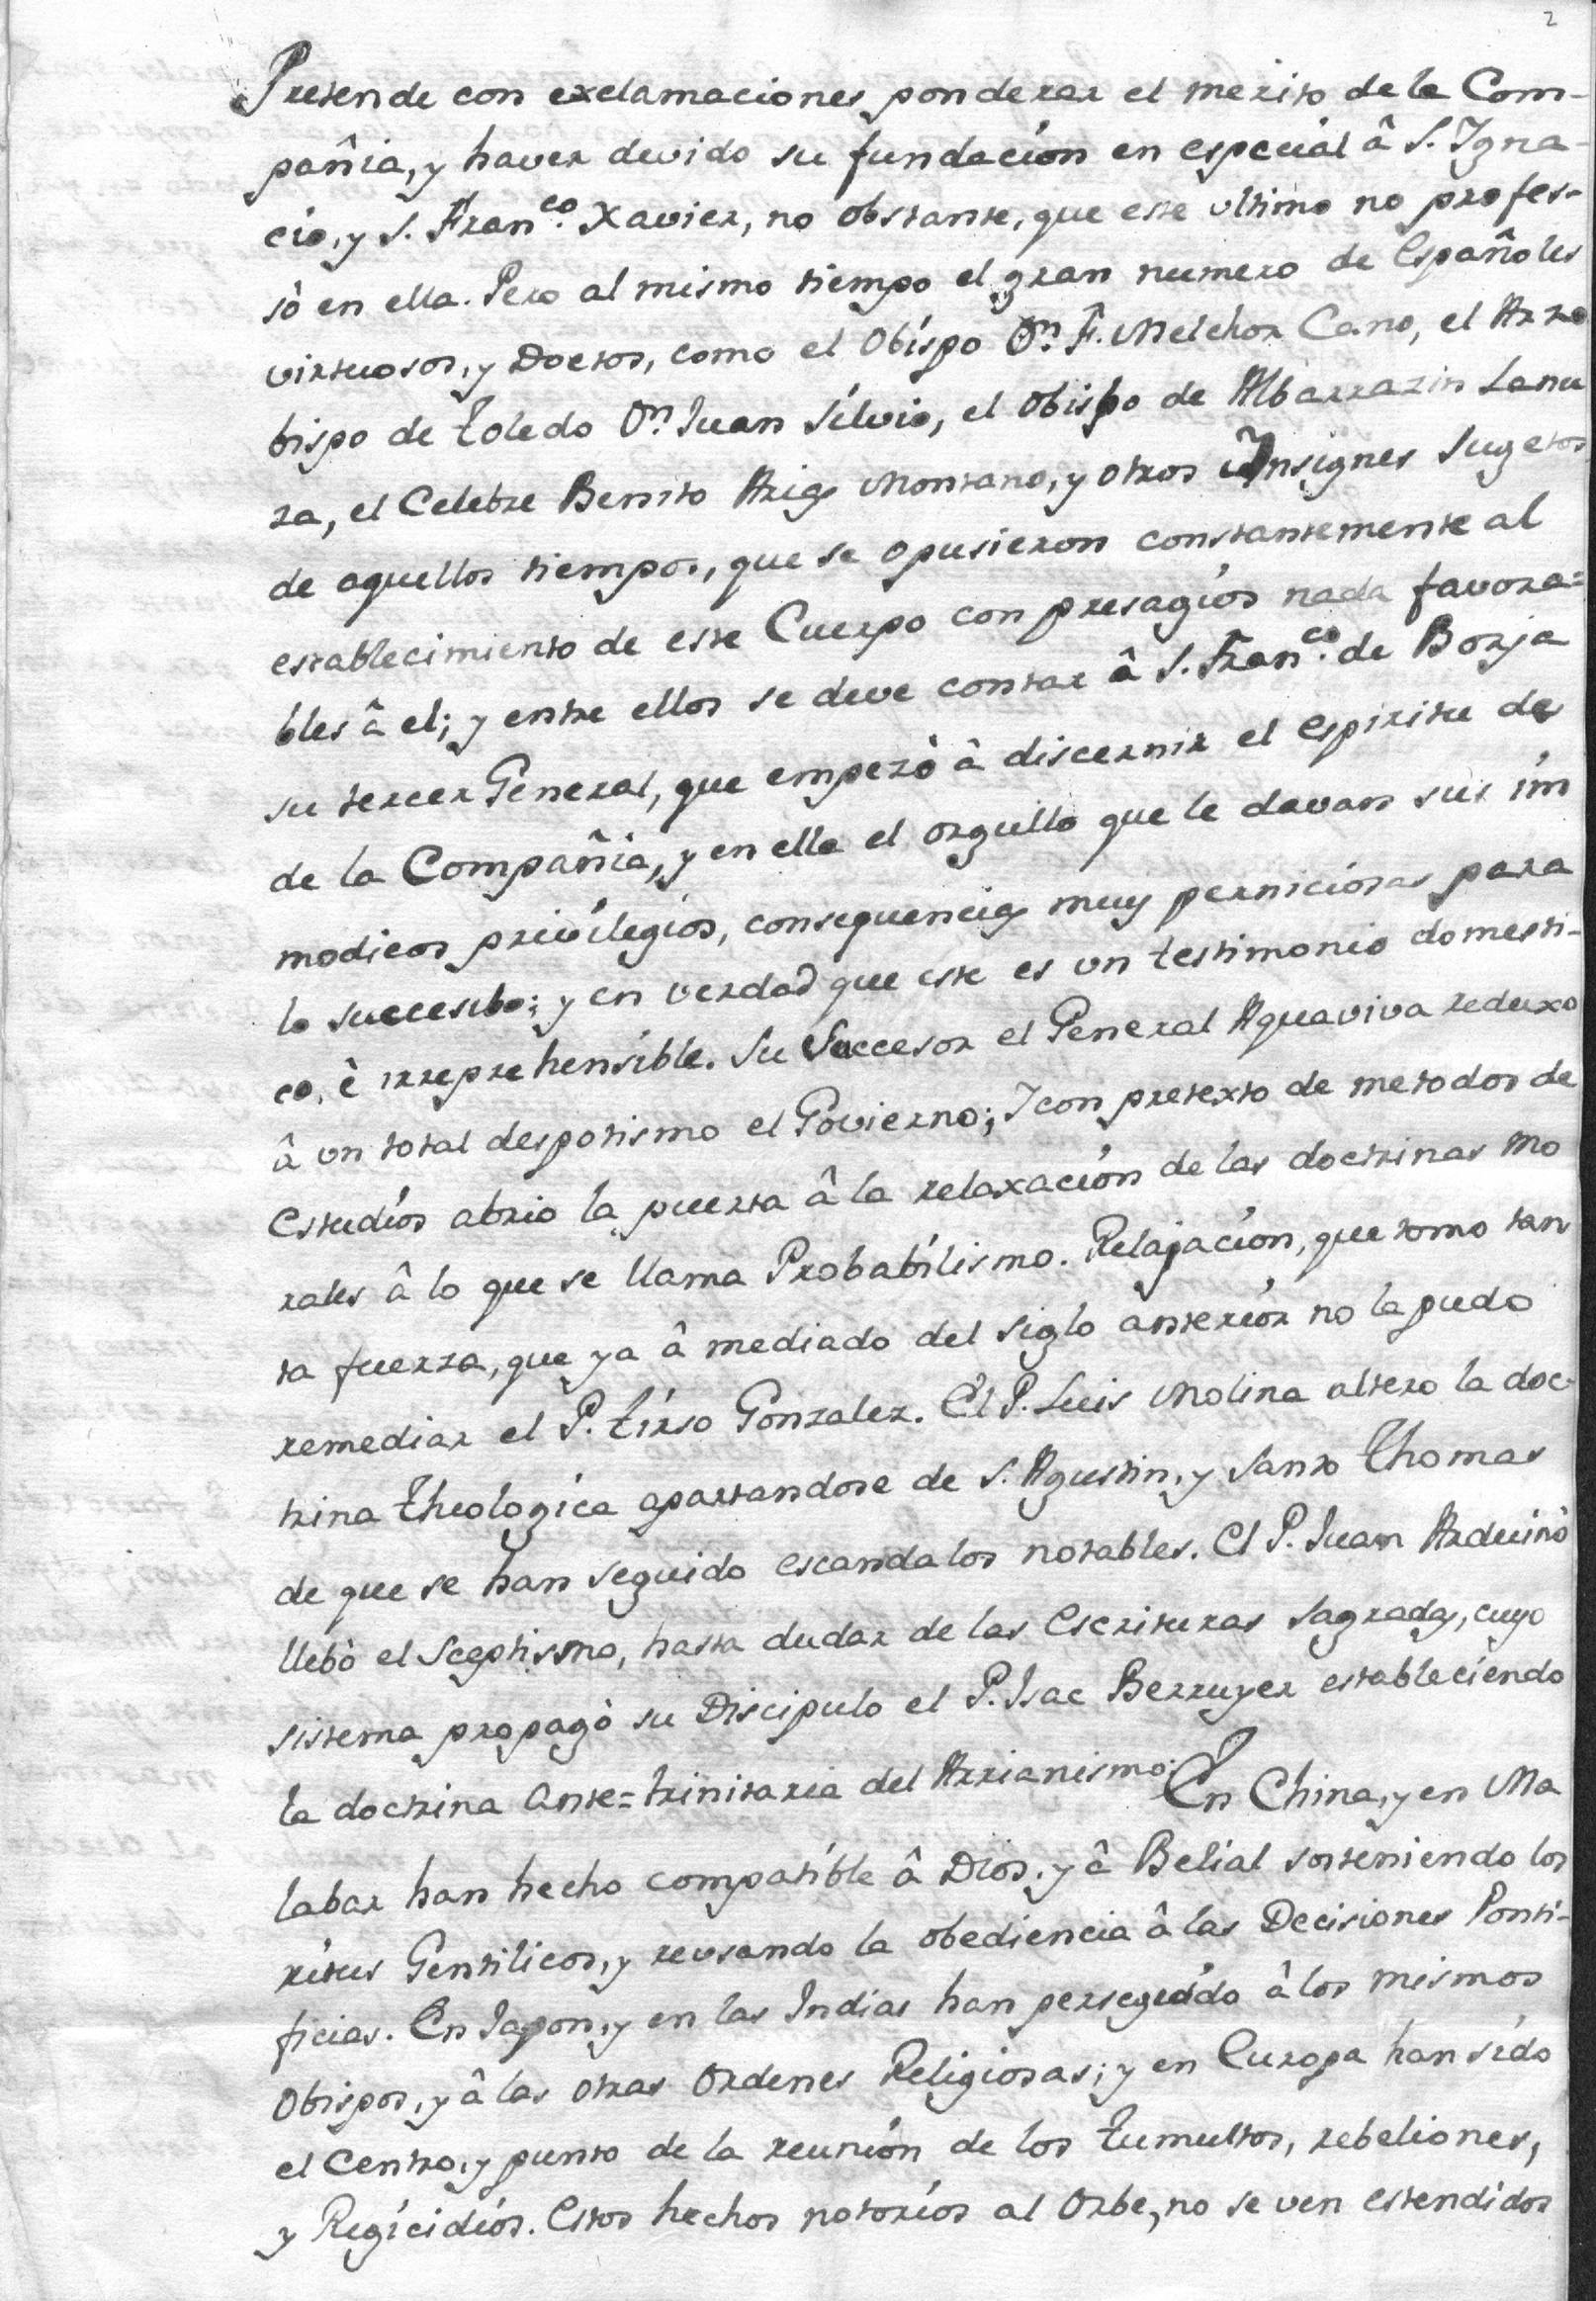 2
Pretende con exclamaciones ponderar el merito de la Com-
pañia, y haver devido su fundacion en especiál â S. Igna-
cio, y S. Fran.co Xavier, no obstante, que este ultimo no profes-
sò en ella. Pero al mismo tiempo el gran numero de Españoles
virtuosos, y Doctos, como el Obispo Dn. F. Melchor Cano, el Arzo
bispo de Toledo Dn. Juan Silvio, el Obispo de Albarrazin Lanu
za, el Celebre Benito Arias Montano, y otros Insignes Sugetos
de aquellos tiempos, que se opusieron constantemente al
establecimiento de este Cuerpo con presagios nada favora=
bles â el; y entre ellos se deve contar â S. Fran.co de Borja
su tercer General, que empezò â discernir el espiritu de
de la Compañia, y en ella el orgullo que le davan sus im
modicos privilegios, consequencias muy perniciosas para
lo succesibo; y en verdad que este es un testimonio domesti-
co, è irreprehensible. Su Succesor el General Aquaviva reduxo
â un total despotismo el Govierno; I con pretexto de metodos de
estudios abrio la puerta â la relaxacion de las doctrinas mo
rales â lo que se llama Probabilismo. Relajacion, que tomo tan
ta fuerza, que ya â mediado del siglo anterior no la pudo
remediar el P. Tirso Gonzalez. El P. Luis Molina altero la doc-
trina theologica apartandose de S. Agustin, y Santo Thomas
de que se han seguido escandalos notables. El P. Juan Arduino
llebò el Sceptismo, hasta dudar de las Escrituras Sagradas, cuyo
sistema propagò su Discipulo el P. Isac Berruyer estableciendo
la doctrina Ante=trinitaria del Arrianismo. En China, y en Ma
labar han hecho compatible â Dios, y â Belial sosteniendo los
ritus Gentilicos, y reusando la obediencia â las Decisiones Ponti-
ficias. En Japon, y en las Indias han perseguido â los mismos
Obispos, y â las otras Ordenes Religiosas; y en Europa han sido
el Centro, y punto de la reunion de los tumultos, rebeliones,
y Regicidios. Estos hechos notorios al Orbe, no se ven estendidos